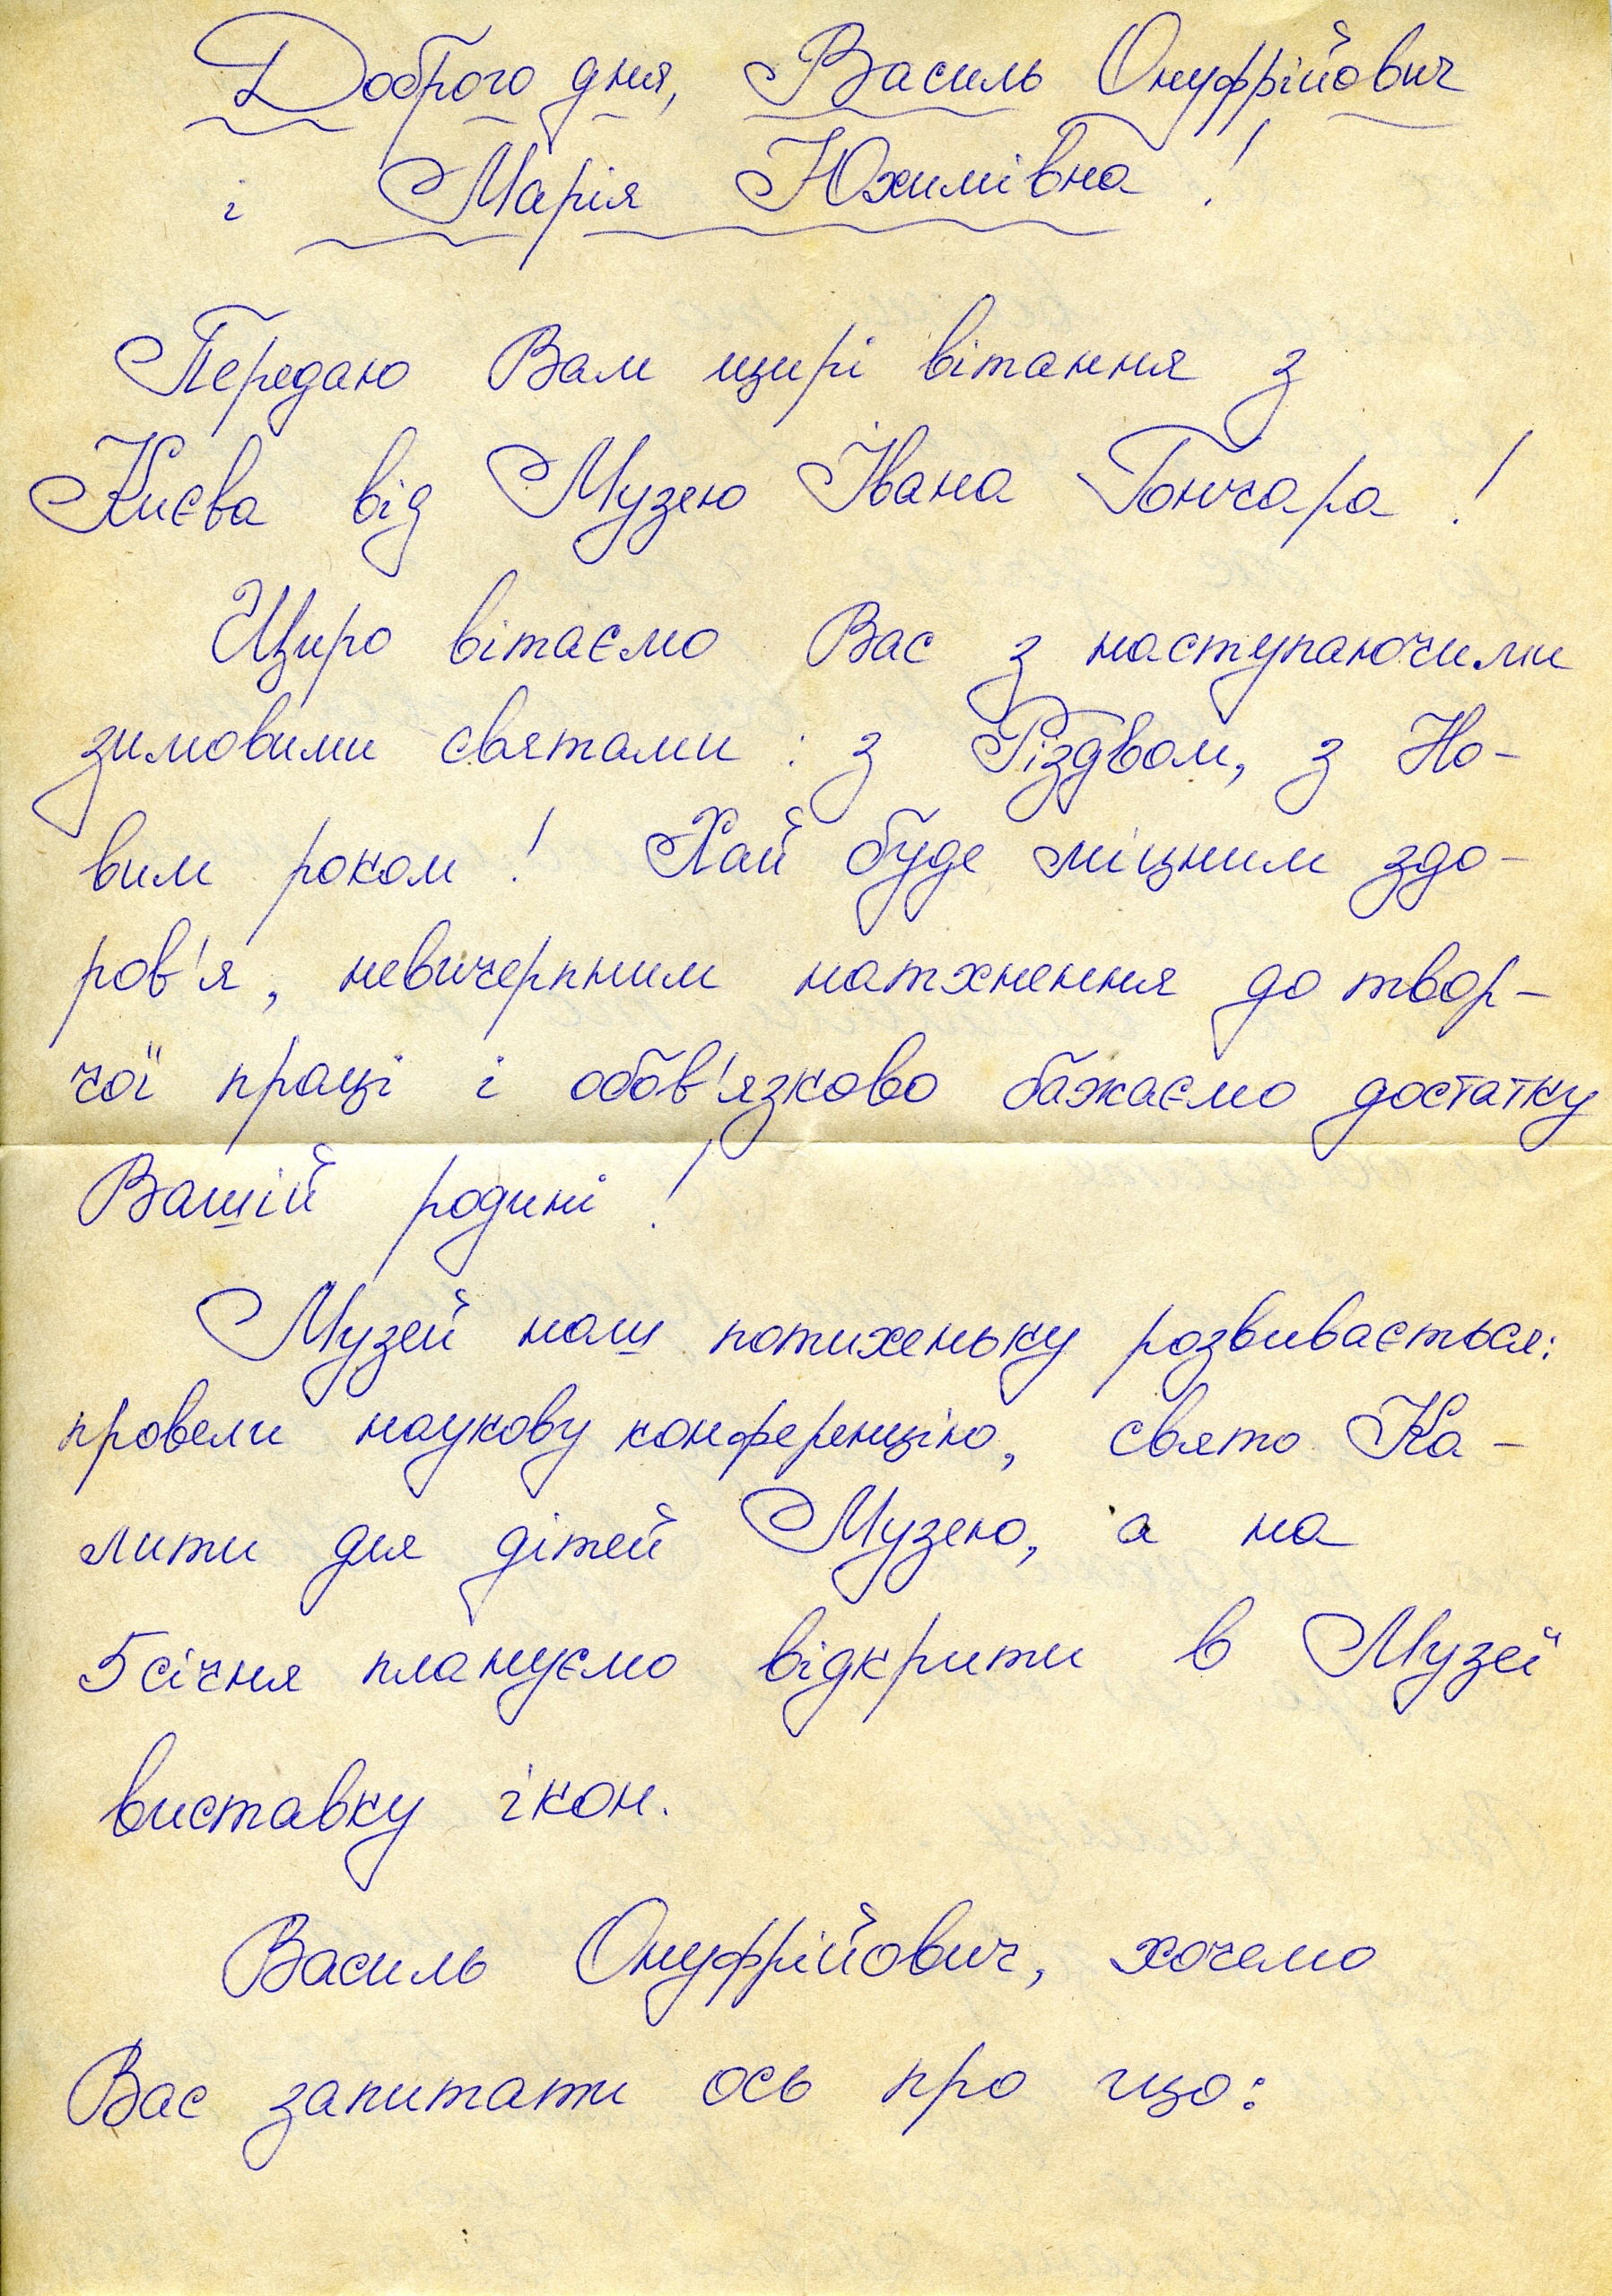 Доброго дня, Василь Онуфрійович
і Марія Юхимівна!
Передаю Вам щирі вітання з
Києва від Музею Івана Гончара!
Щиро вітаємо Вас з наступаючими
зимовими святами: з Різдвом, з Но-
вим роком! Хай буде міцним здо-
ров'я, невичерпним натхнення до твор-
чої праці і обов'язково бажаємо достатку
Вашій родині!
Музей наш потихеньку розвивається:
провели наукову конференцію, свято Ка-
лити для дітей Музею, а на
5 січня плануємо відкрити в Музеї
виставку ікон.
Василь Онуфрійович, хочемо
Вас запитати ось про що: